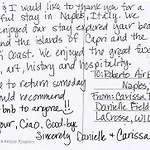 I would like to thank you for a
ful stay in Naples, Italy. We
enjoyed our stay explored your beau
and the islands of Capri and the
Coast. We enjoyed the great
art, history and hospitality.
to return someday
would recommend
bnb to anyone!!
our, Ciao. Good-bye
Sincerely,
Danielle + Carissa
To: Roberto Airb
Naples,
From: Carissa T
Danielle Field
LaCrosse, WI